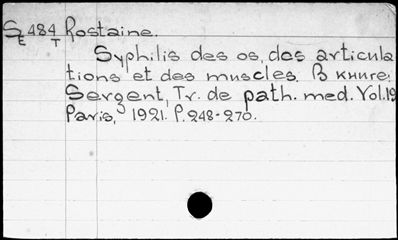 S 484 Rostaine.
E T
Syphilis des os, des articula
tions et des muscles. В книге:
Sergent, Tr. de path. med. Vol.19
Paris, 1921. P. 248-270.